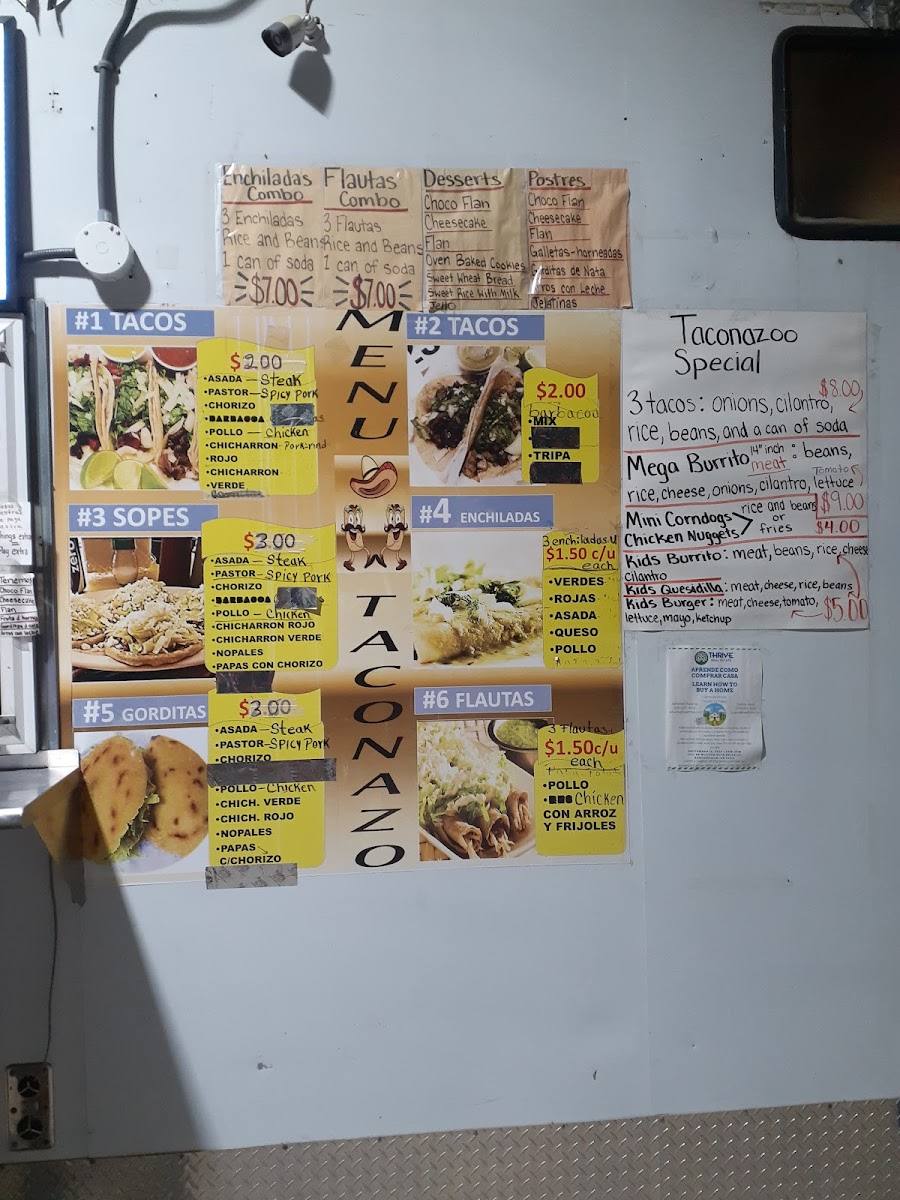 Enchiladas
Combo
3 Enchiladas
Rice and Beans
1 can of soda
$7.00
Flautas
Combo
3 Flautas
Rice and Beans
1 can of soda
$7.00
Desserts
Choco Flan
Cheesecake
Flan
Oven Baked Cookies
Sweet Wheat Bread
Sweet Rice With Milk
Jello
Postres
Choco Flan
Cheesecake
Flan
Galletas-horneadas
Gorditas de Nata
Arros con Leche
Jelatinas
MENU TACONAZO
#1 TACOS
$2.00
•ASADA — Steak
•PASTOR — Spicy Pork
•CHORIZO
•BARBACOA
•POLLO — Chicken
•CHICHARRON Porkrind
ROJO
•CHICHARRON
VERDE
#2 TACOS
$2.00
barbacoa
•MIX
•TRIPA
#3 SOPES
$3.00
•ASADA — Steak
•PASTOR — Spicy Pork
•CHORIZO
•BARBACOA
•POLLO — Chicken
•CHICHARRON ROJO
•CHICHARRON VERDE
•NOPALES
•PAPAS CON CHORIZO
#4 ENCHILADAS
3 enchiladas
$1.50 c/u
each
•VERDES
•ROJAS
•ASADA
•QUESO
•POLLO
#5 GORDITAS
$3.00
•ASADA — Steak
•PASTOR — Spicy Pork
•CHORIZO
•POLLO — Chicken
•CHICH. VERDE
•CHICH. ROJO
•NOPALES
•PAPAS
C/CHORIZO
#6 FLAUTAS
3 flautas
$1.50c/u
each
•POLLO
Chicken
CON ARROZ
Y FRIJOLES
Taconazoo
Special
$8.00
3 tacos: onions, cilantro,
rice, beans, and a can of soda
Mega Burrito 14" inch meat : beans,
Tomato
rice, cheese, onions, cilantro, lettuce
$9.00
Mini Corndogs
Chicken Nuggets
rice and beans
or
fries
$4.00
Kids Burrito: meat, beans, rice, cheese
cilantro
Kids Quesidilla: meat, cheese, rice, beans
Kids Burger: meat, cheese, tomato,
lettuce, mayo, ketchup
$5.00
THRIVE
REAL ESTATE
APRENDE COMO
COMPRAR CASA
LEARN HOW TO
BUY A HOME
Pay extra
Tenemos
Choco Flan
Cheesecake
Flan